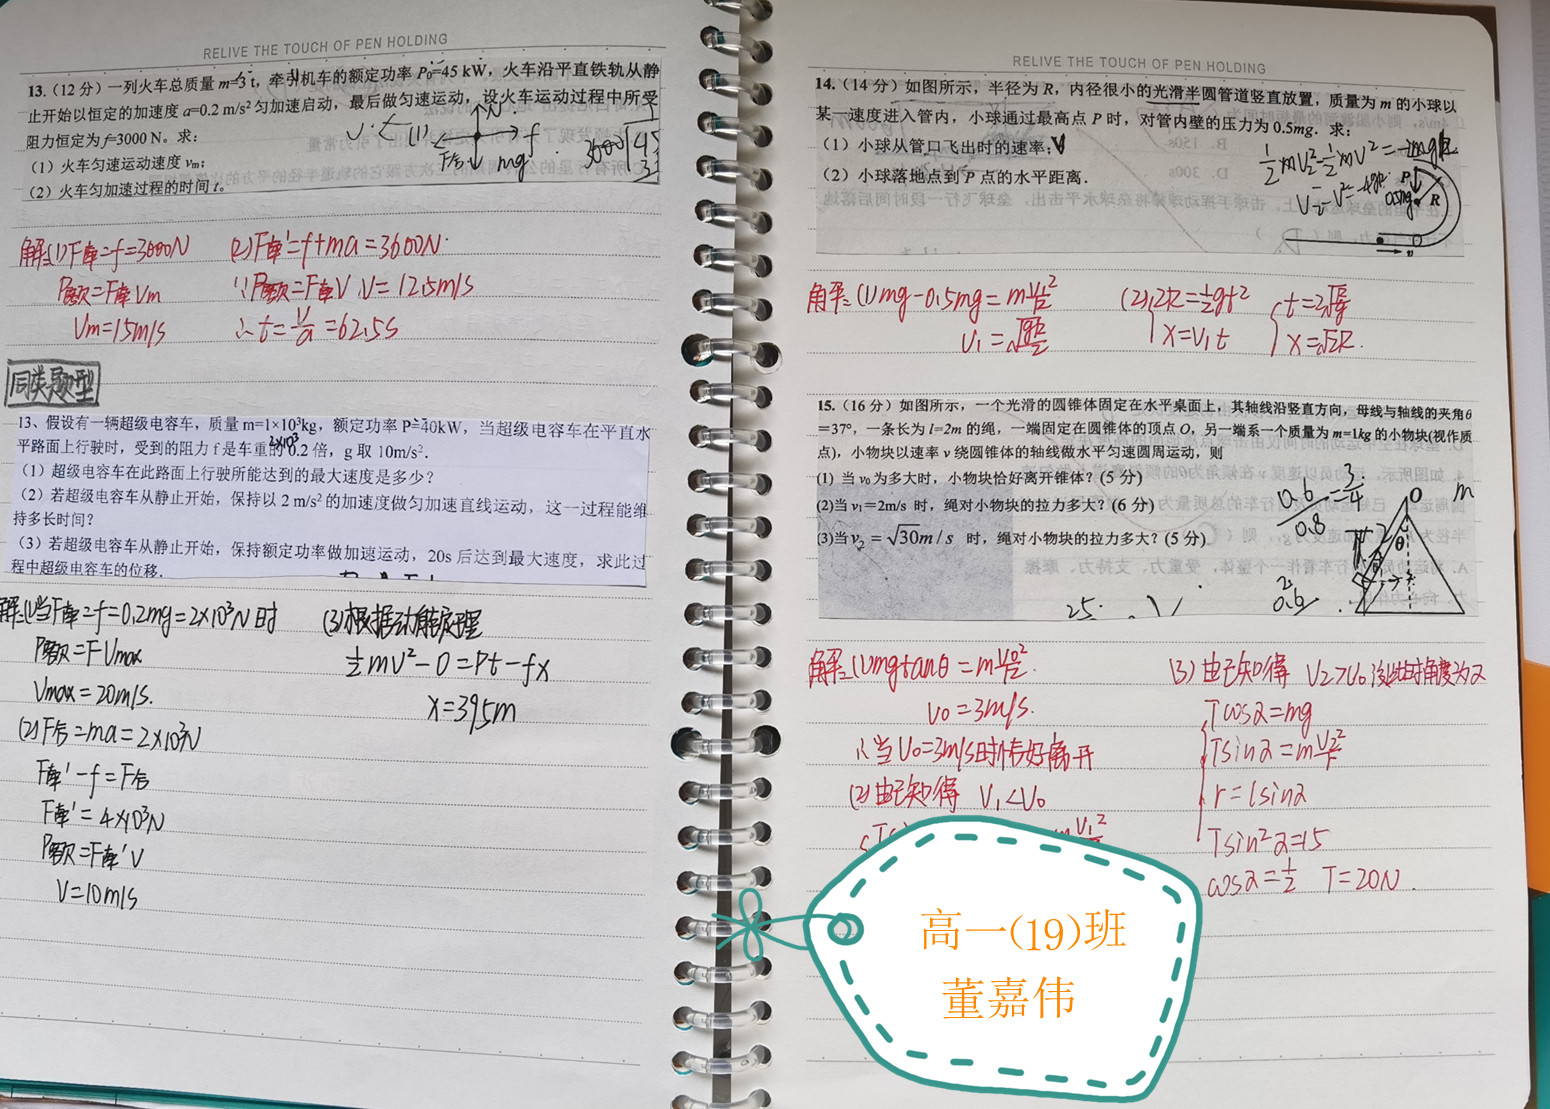 RELIVE THE TOUCH OF PEN HOLDING
13.(12 分)一列火车总质量 m=3 t，牵引机车的额定功率 P₀=45 kW，火车沿平直铁轨从静
止开始以恒定的加速度 a=0.2 m/s² 匀加速启动，最后做匀速运动，设火车运动过程中所受
阻力恒定为 f=3000 N。求：
(1) 火车匀速运动速度 vₘ；
(2) 火车匀加速过程的时间 t。
解:(1)F牵=f=3000N
P额=F牵Vm
Vm=15m/s
(2)F牵'=f+ma=3600N
∵P额=F牵V V=12.5m/s
∴t=V/a=62.5s
同类题型
13、假设有一辆超级电容车，质量 m=1×10³kg，额定功率 P=40kW，当超级电容车在平直水
平路面上行驶时，受到的阻力 f 是车重的 0.2 倍，g 取 10m/s²．
2×10³
(1) 超级电容车在此路面上行驶所能达到的最大速度是多少？
(2) 若超级电容车从静止开始，保持以 2 m/s² 的加速度做匀加速直线运动，这一过程能维
持多长时间？
(3) 若超级电容车从静止开始，保持额定功率做加速运动，20s 后达到最大速度，求此过
程中超级电容车的位移．
解:(1)当F牵=f=0.2mg=2×10³N时
P额=FVmax
Vmax=20m/s.
(2)F合=ma=2×10³N
F牵'-f=F合
F牵'=4×10³N
P额=F牵'V
V=10m/s
(3)根据动能定理
½mv²-0=Pt-fx
x=395m
RELIVE THE TOUCH OF PEN HOLDING
14.(14 分)如图所示，半径为 R，内径很小的光滑半圆管道竖直放置，质量为 m 的小球以
某一速度进入管内，小球通过最高点 P 时，对管内壁的压力为 0.5mg．求：
(1) 小球从管口飞出时的速率；
(2) 小球落地点到 P 点的水平距离．
P
R
0.5mg
v
解:(1)mg-0.5mg=mV₁²/R
V₁=√(gR/2)
(2)2R=½gt²
x=V₁t
t=2√(R/g)
x=√2R.
15.(16 分)如图所示，一个光滑的圆锥体固定在水平桌面上，其轴线沿竖直方向，母线与轴线的夹角θ
=37°，一条长为 l=2m 的绳，一端固定在圆锥体的顶点 O，另一端系一个质量为 m=1kg 的小物块(视作质
点)，小物块以速率 v 绕圆锥体的轴线做水平匀速圆周运动，则
(1) 当 v₀ 为多大时，小物块恰好离开锥体？(5 分)
(2)当 v₁=2m/s 时，绳对小物块的拉力多大？(6 分)
(3)当v₂ = √30m / s 时，绳对小物块的拉力多大？(5 分)
0.6/0.8=3/4
O
θ
解:(1)mgtanθ=mV₀²/r.
V₀=3m/s.
∴当V₀=3m/s时恰好离开
(2)由已知得 V₁<V₀
(3)由已知得 V₂>V₀ 设此时角度为α
Tcosα=mg
Tsinα=mV₂²/r
r=lsinα
Tsin²α=15
cosα=½ T=20N.
高一(19)班
董嘉伟